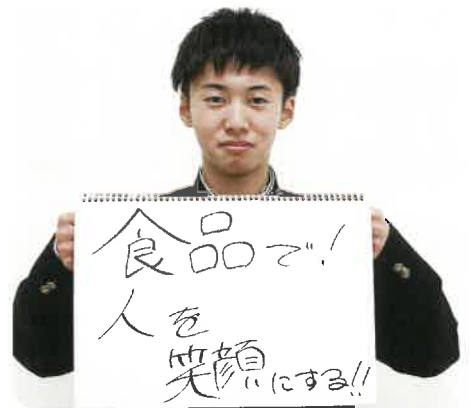 食品で!
人を
笑顔にする!!